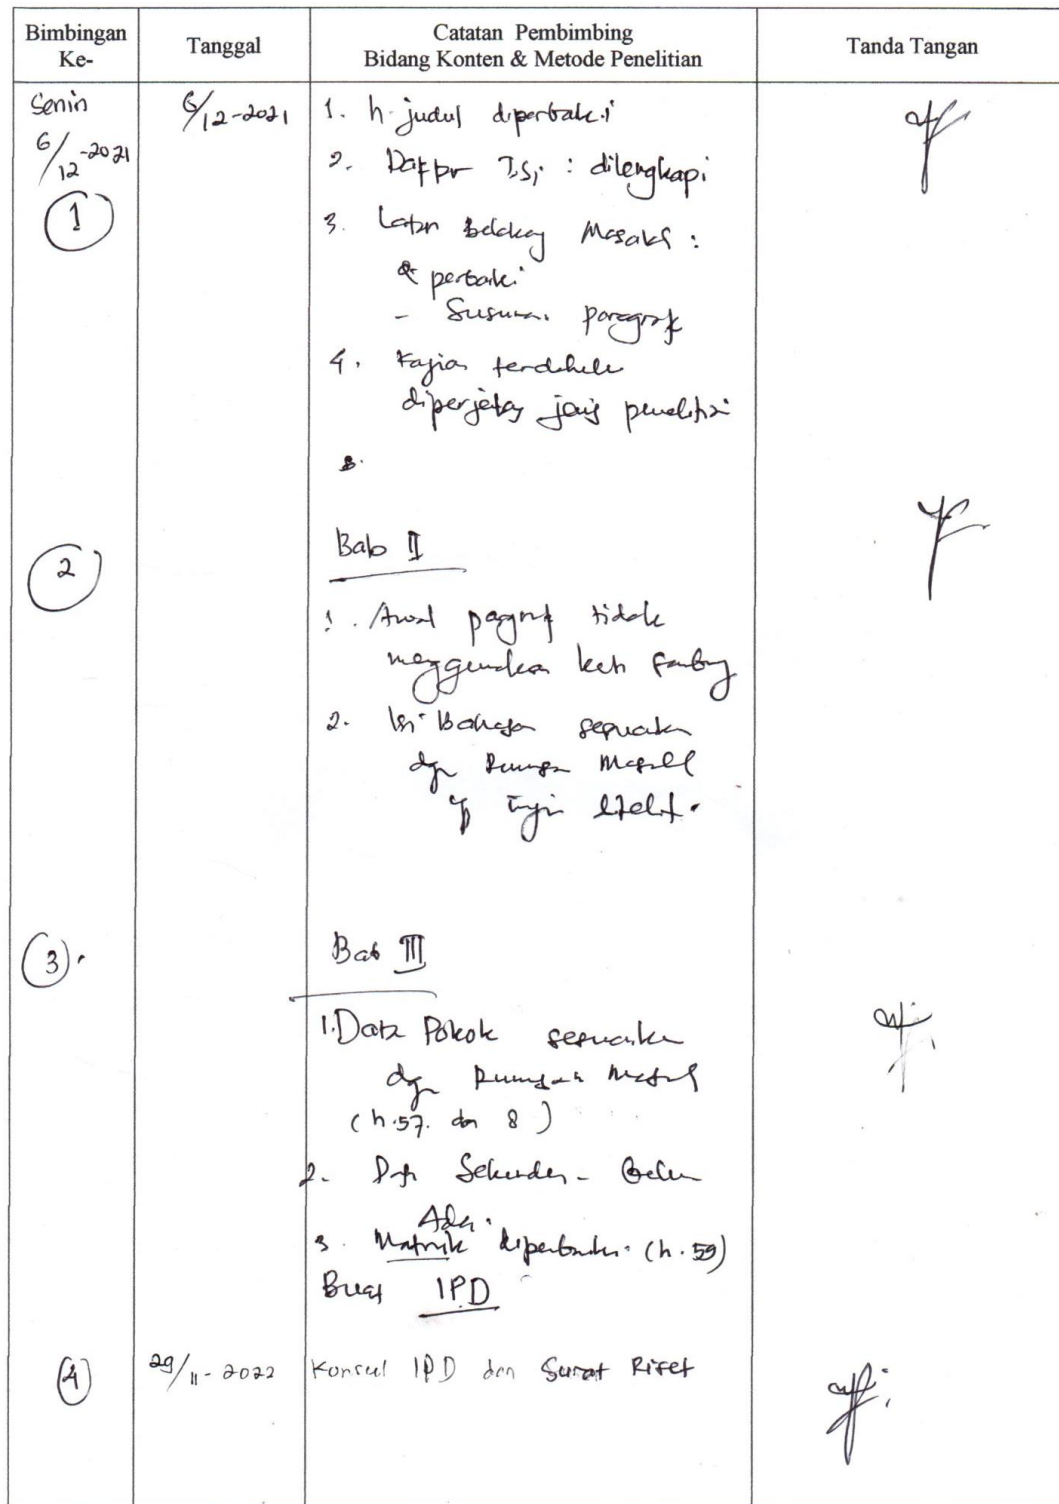 Bimbingan Ke-
Tanggal
Catatan Pembimbing
Bidang Konten & Metode Penelitian
Tanda Tangan
Senin
6/12-2021
1
6/12-2021
1. h. judul diperbaiki
2. Daftar Isi : dilengkapi
3. Latar Belakang Masalah :
perbaiki
- Susunan paragraf
4. Kajian terdahulu
diperjelas jenis penelitian
2
Bab II
1. Awal paragraf tidak
menggunakan kata
2. Isi Bahasan sesuaikan
dgn Rumusan Masalah
yg ingin diteliti.
3
Bab III
1. Data Pokok sesuaikan
dgn Rumusan Masalah
(h.57. dan 8)
2. Data Sekunder - Belum
Ada.
3. Matrik diperbaiki (h. 59)
Buat IPD
4
29/11-2022
Konsul IPD dan Surat Riset